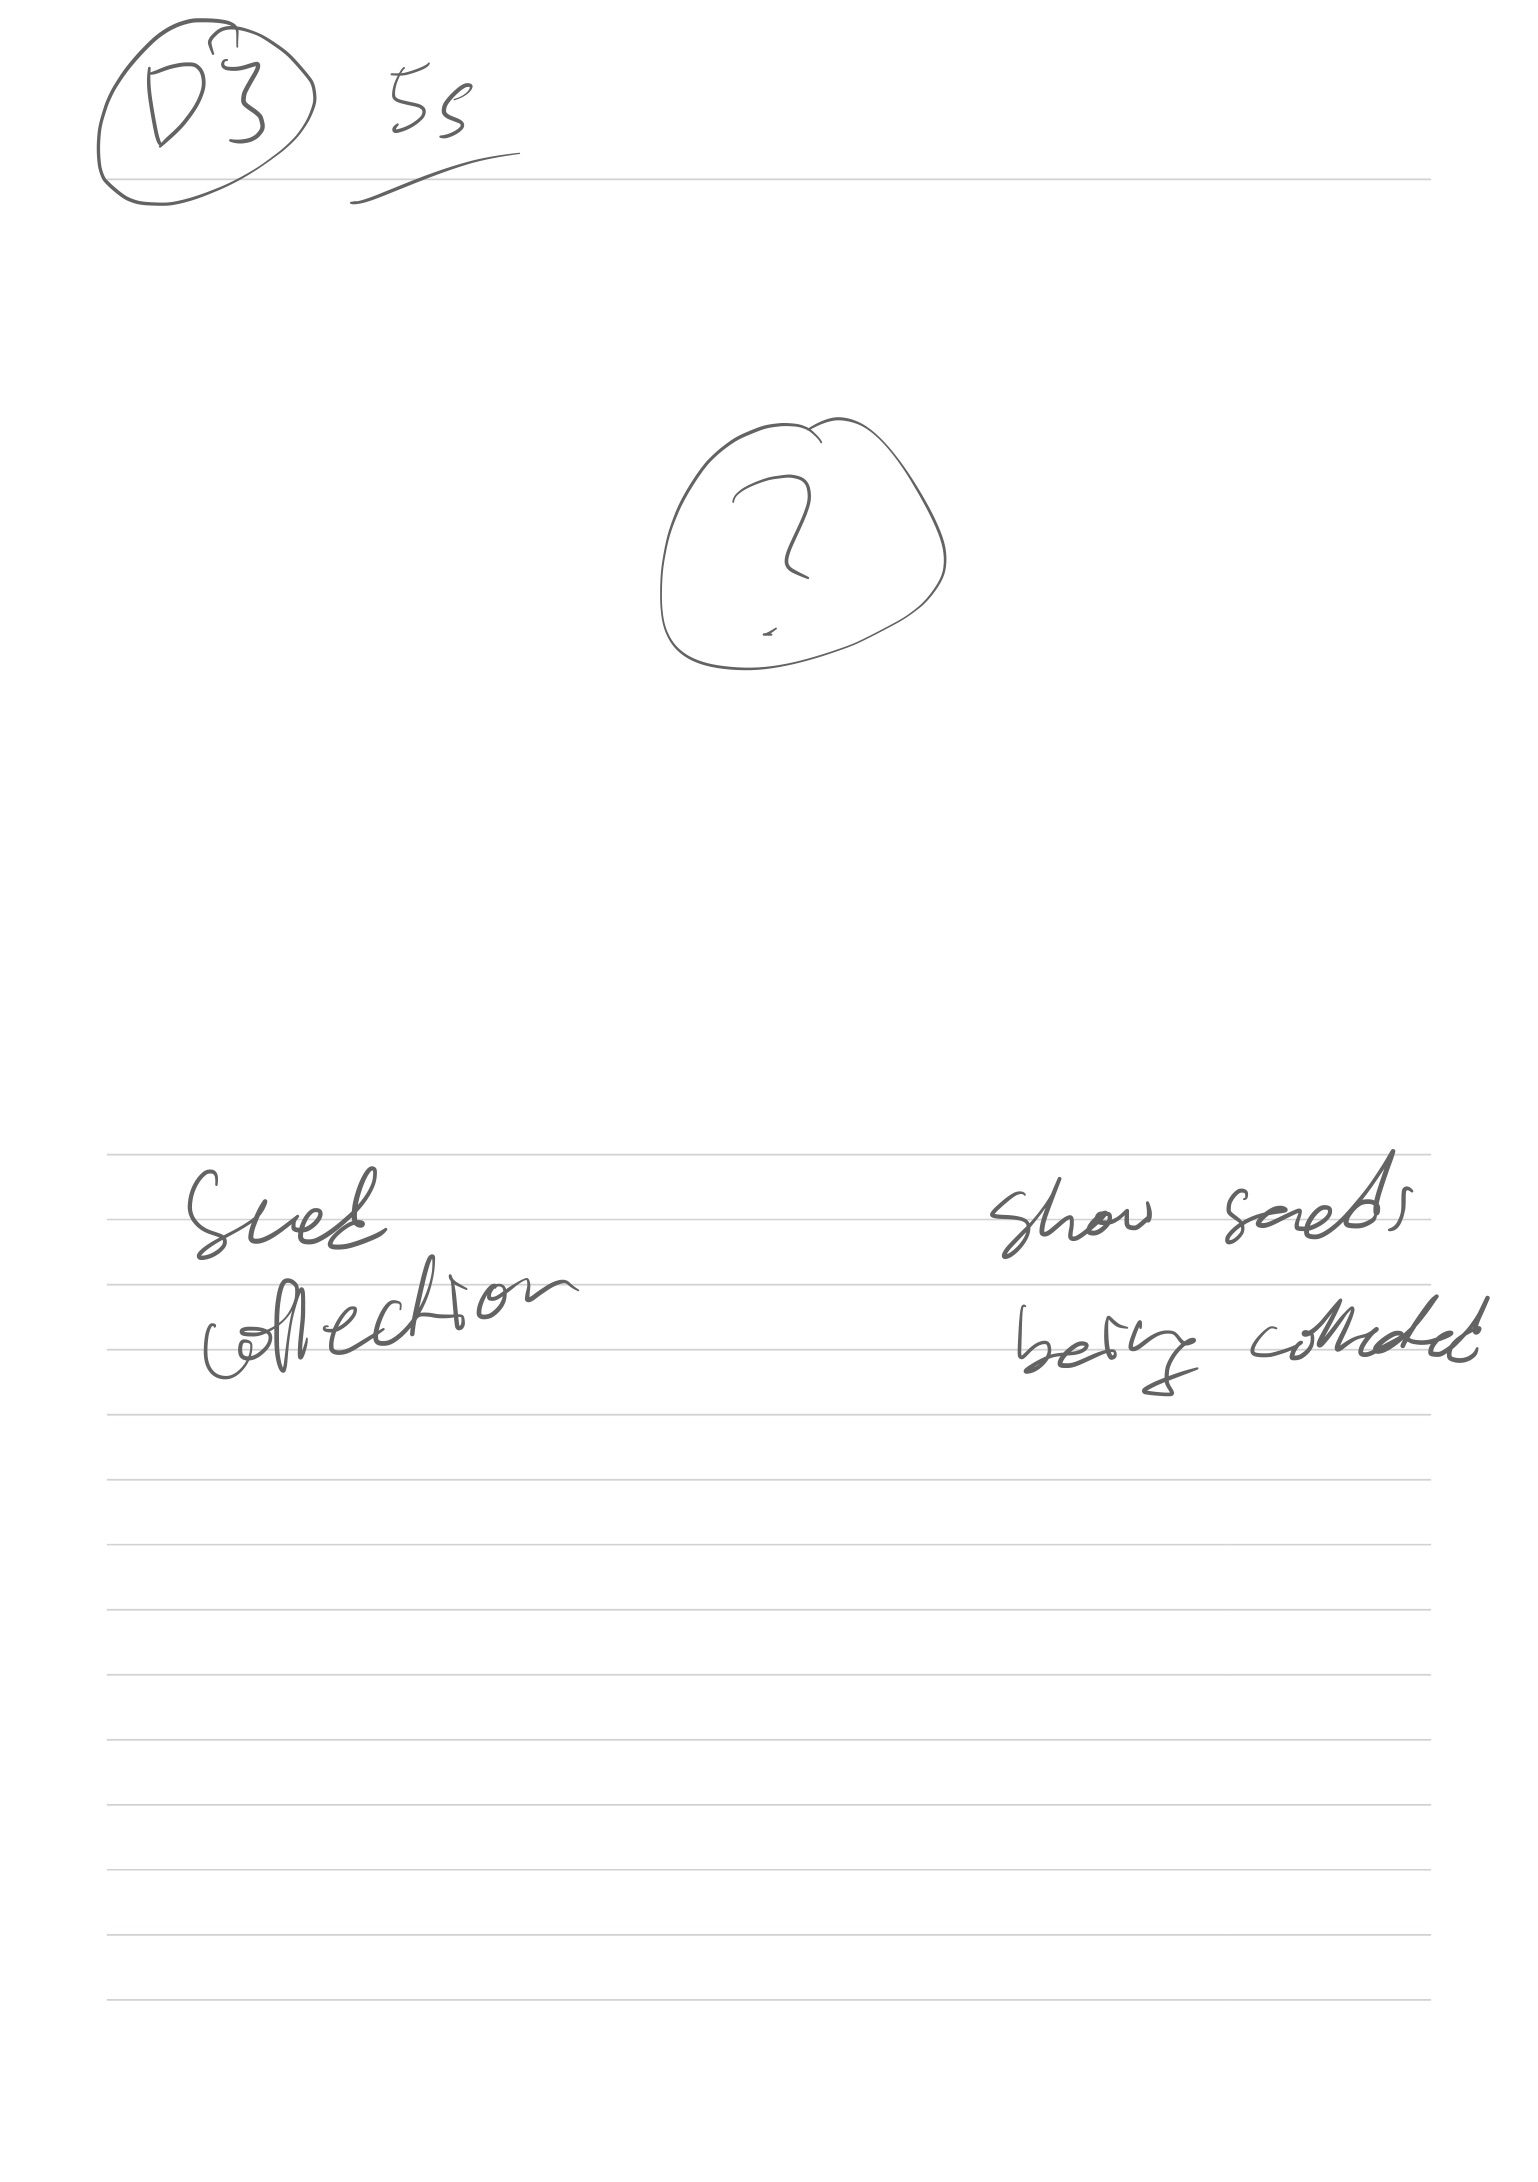 D3 5s
?
Seed
collection
show seeds
being collected